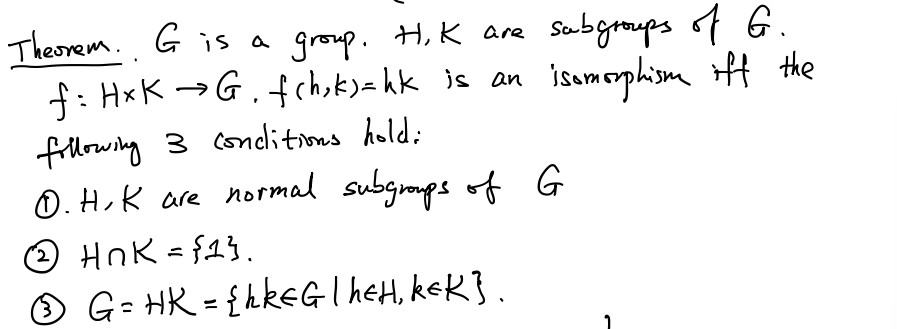 Theorem. G is a group. H, K are subgroups of G.
f: H×K → G, f(h,k)=hk is an isomorphism iff the
following 3 conditions hold:
①. H, K are normal subgroups of G
② H∩K = {1}.
③ G = HK = {hk∈G | h∈H, k∈K}.